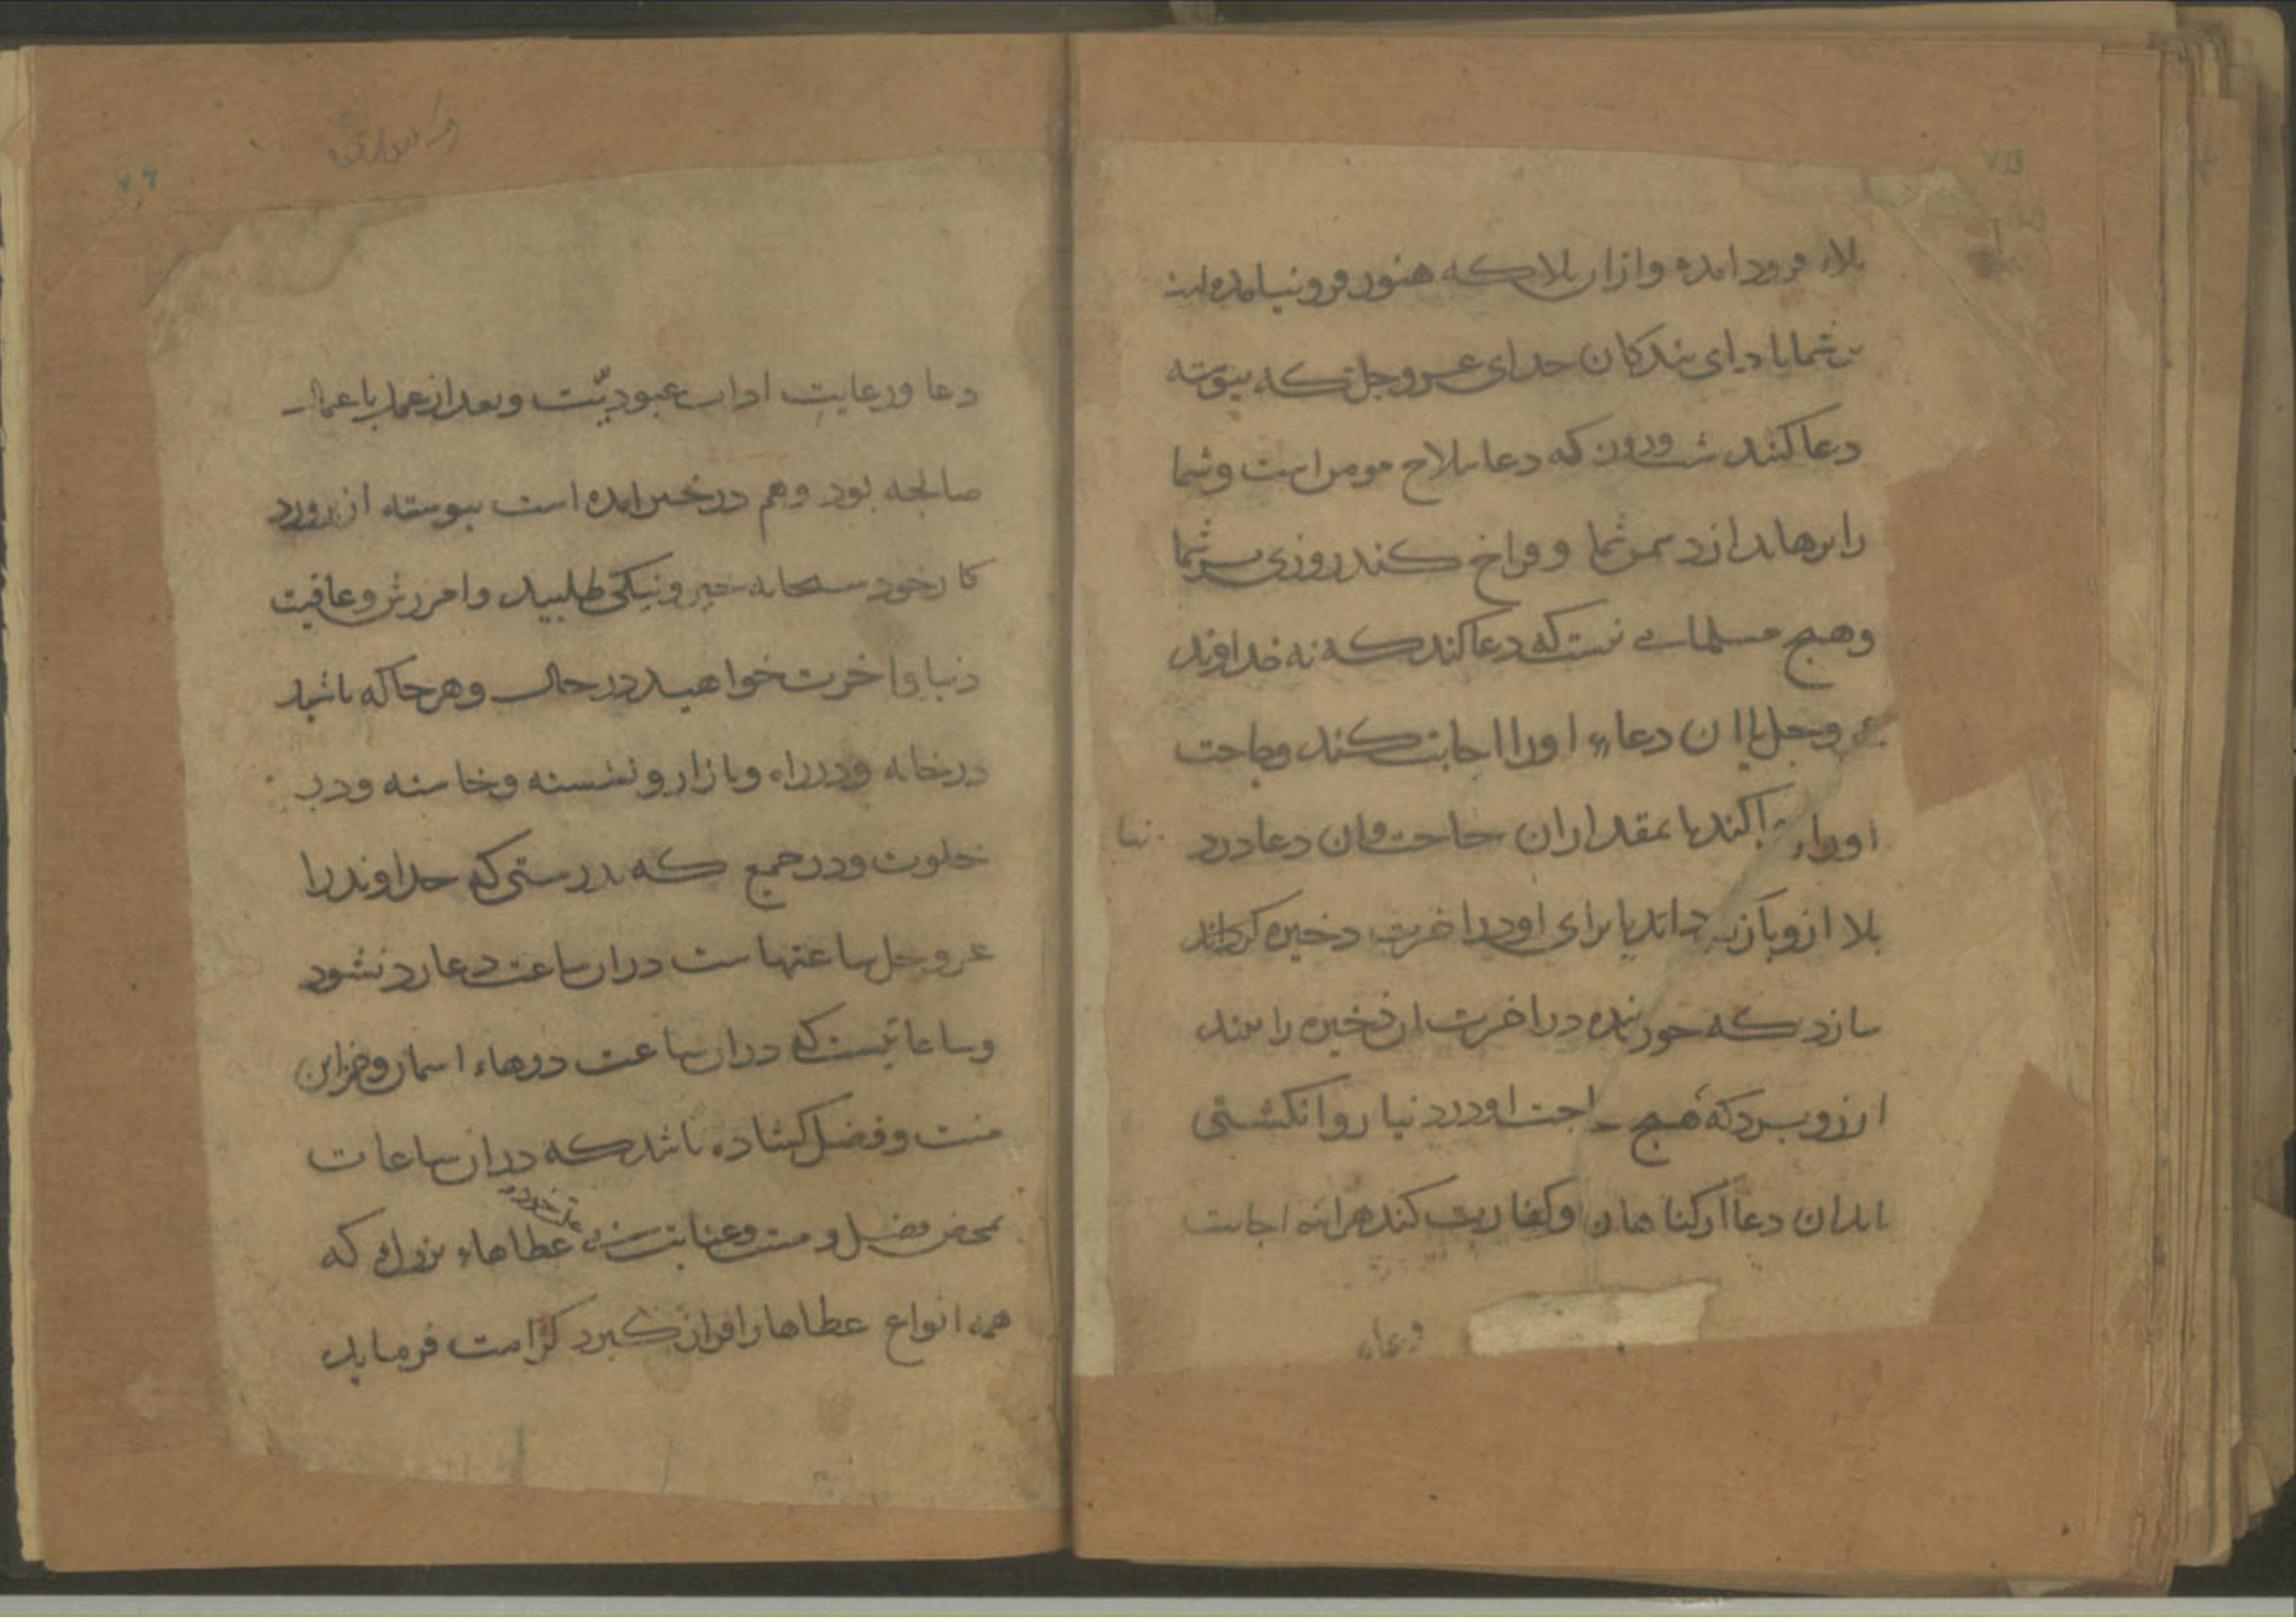 ۷۵
بلاء فرود امده وازان بلا که هنوز فرو نیامده است
بر شما بادای بندکان خدای عز وجل که پیوسته
دعا کنند شب وروز که دعا سلاح مومن است وشما
را برهاند از دشمن شما و فراخ کند روزی بر شما
وهیچ مسلمانی نیست که دعا کند که نه خداوند
عز وجل یا ان دعاء او را اجابت کند وحاجت
اورا روا کند یا بمقدار ان حاجت وان دعا در دنیا
بلا ازو باز کرداند یا برای او در اخرت ذخیره کرداند
سازد که چون بنده در اخرت ان ذخیره را بیند
ارزو برد که هیچ حاجت او در دنیا روا نکشتی
یا بدان دعا از کناهان او کفارت کند هراینه اجابت
دعاء
۷۶
دعا ورعایت اداب عبودیّت وبعد از عمل با عمال
صالحه بود وهم در خبر امده است پیوسته از پرورد
کار خود سبحانه خیر ونیکی طلبید وامرزش وعافیت
دنیا واخرت خواهید در حال وهر جا که باشید
در خانه ودر راه وبازار ونشسته وخاسته ودر
خلوت ودر جمع که بدرستی که خداوند را
عز وجل ساعتهاست دران ساعت دعا رد نشود
وساعاتیست که دران ساعت درهاء اسمان وخزاین
منت وفضل کشاده باشد که دران ساعات
بمحض فضل ومنت وعنایت عطاهاء بزرك که
همه انواع عطاها را فراز کیرد کرامت فرماید